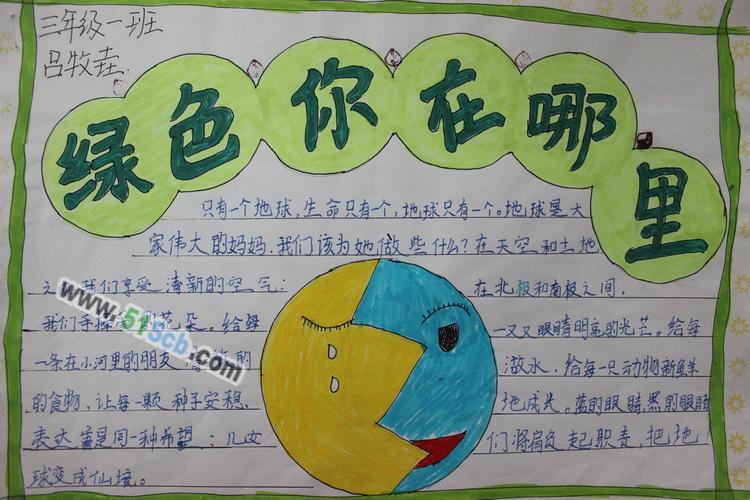 三年级一班
吕牧垚
绿色你在哪里
只有一个地球,生命只有一个,地球只有一个。地球是大
家伟大的妈妈,我们该为她做些什么?在天空和土地
之 我们享受清新的空气; 在北极和南极之间,
我们手捧 的花朵。给每 一又又眼睛明亮的光芒。给每
一条在小河里的朋友 的 澈水,给每一只动物新鲜
的食物,让每一颗种子安稳 地成长。蓝的眼睛黑的眼睛
表达 是同一种希望;儿女 们将肩负起职责,把地
球变成仙境。
www.515cb.com